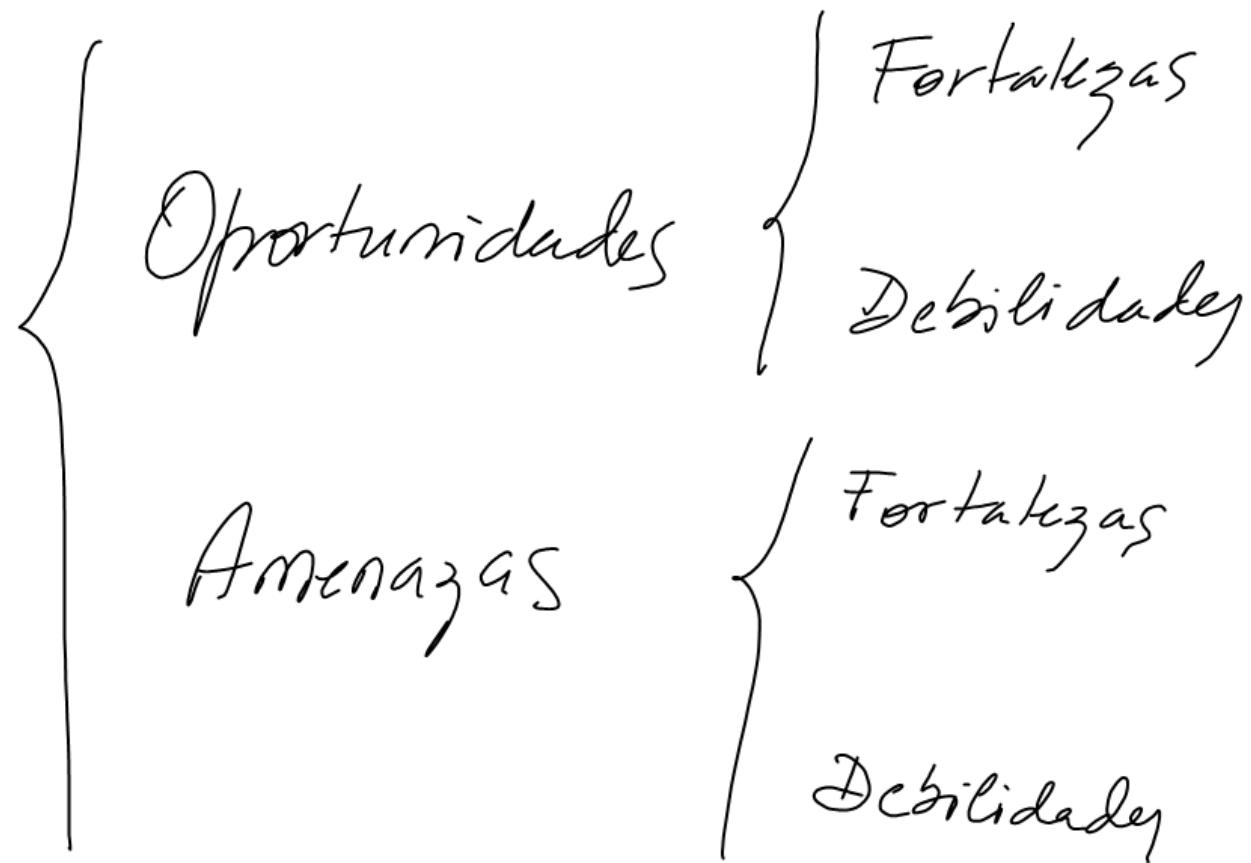 Oportunidades
Fortalezas
Debilidades
Amenazas
Fortalezas
Debilidades